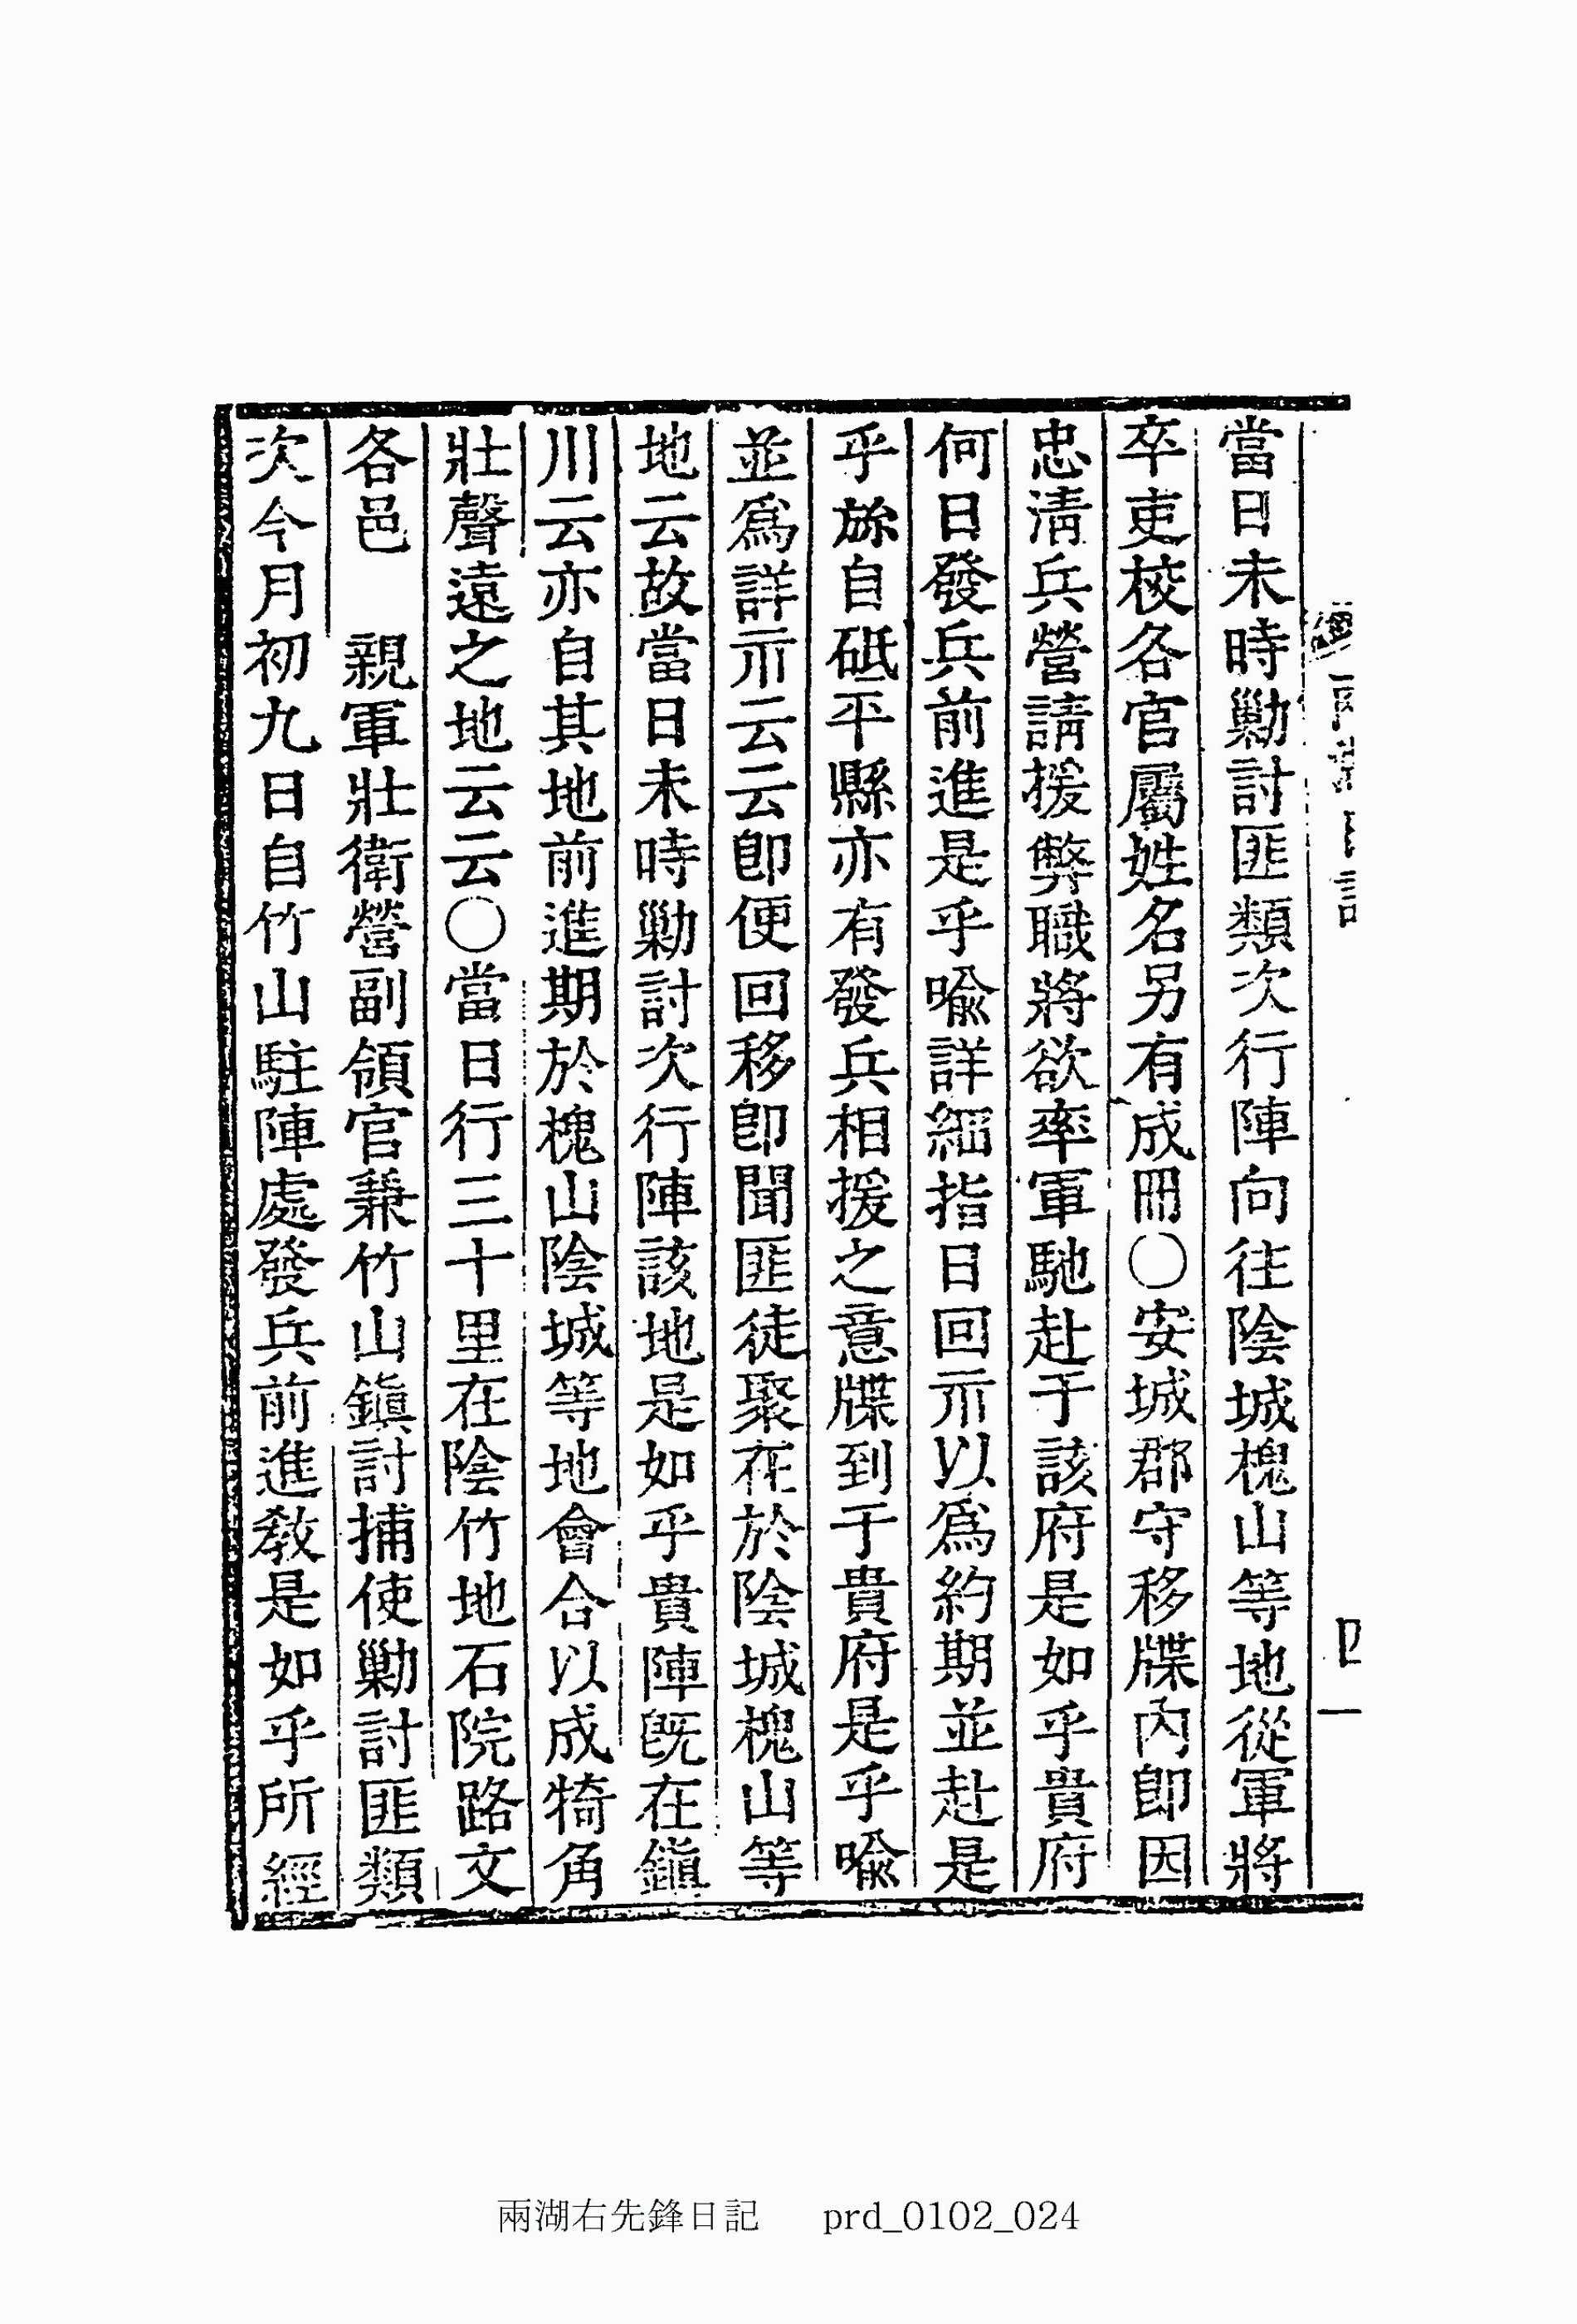 當日未時勦討匪類次行陣向往陰城槐山等地從軍將
卒吏校各官屬姓名另有成冊○安城郡守移牒內卽因
忠淸兵營請援弊職將欲率軍馳赴于該府是如乎貴府
何日發兵前進是乎喩詳細指日回示以爲約期並赴是
乎旀自砥平縣亦有發兵相援之意牒到于貴府是乎喩
並爲詳示云云卽便回移卽聞匪徒聚在於陰城槐山等
地云故當日未時勦討次行陣該地是如乎貴陣旣在鎭
川云亦自其地前進期於槐山陰城等地會合以成犄角
壯聲遠之地云云○當日行三十里在陰竹地石院路文
各邑　親軍壯衛營副領官兼竹山鎭討捕使勦討匪類
次今月初九日自竹山駐陣處發兵前進敎是如乎所經
兩湖右先鋒日記 prd_0102_024